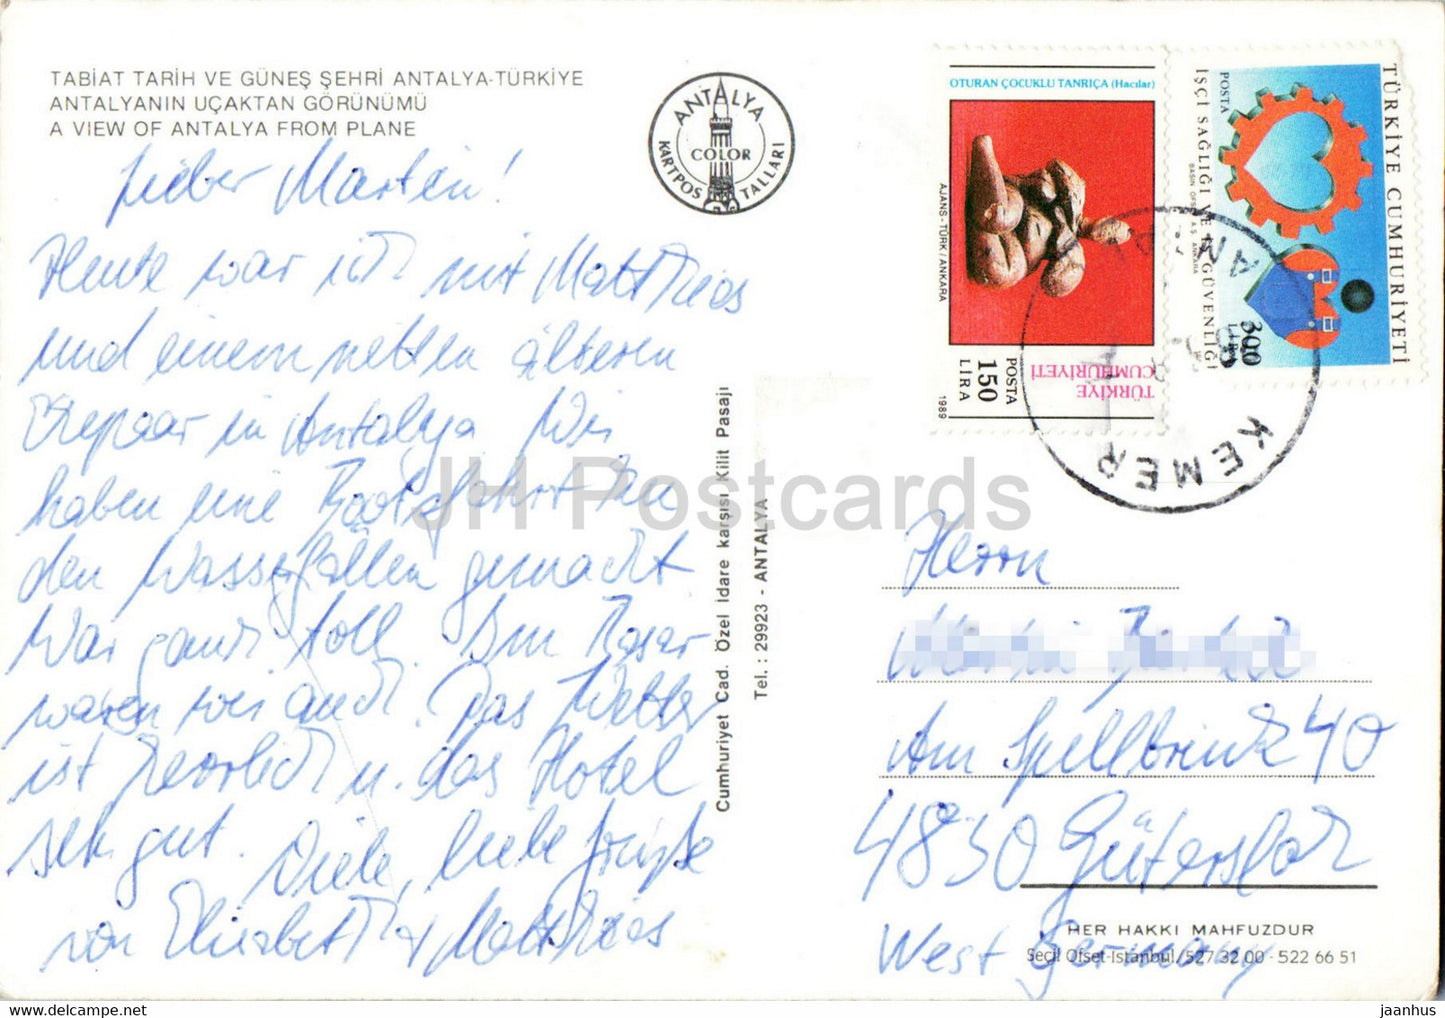 TABİAT TARİH VE GÜNEŞ ŞEHRİ ANTALYA-TÜRKİYE
ANTALYANIN UÇAKTAN GÖRÜNÜMÜ
A VIEW OF ANTALYA FROM PLANE
ANTALYA
COLOR
KARTPOSTALLARI
Lieber Martin!
Heute war ich mit Matthias
und einem netten älteren
Ehepaar in Antalya Wir
haben eine Bootsfahrt zu
den Wasserfällen gemacht
War ganz toll. Im Basar
waren wir auch. Das Wetter
ist herrlich u. das Hotel
sehr gut. Viele liebe Grüße
von Elisabeth & Matthias
Cumhuriyet Cad. Özel İdare karşısı Kilit Pasajı
Tel.: 29923 - ANTALYA
OTURAN ÇOCUKLU TANRIÇA (Hacılar)
AJANS-TÜRK/ANKARA
TÜRKİYE
CUMHURİYETİ
POSTA
150
LİRA
1989
TÜRKİYE CUMHURİYETİ
İŞÇİ SAĞLIĞI VE İŞ GÜVENLİĞİ
POSTA
BASIM OFSET A.Ş. ANKARA
300
LİRA
KEMER
Herrn
Am Spellbrink 40
4830 Gütersloh
West Germany
HER HAKKI MAHFUZDUR
Seçil Ofset-İstanbul. 527 32 00 - 522 66 51
JH Postcards
hipstamp.com/store/jh-postcards
jaanhus